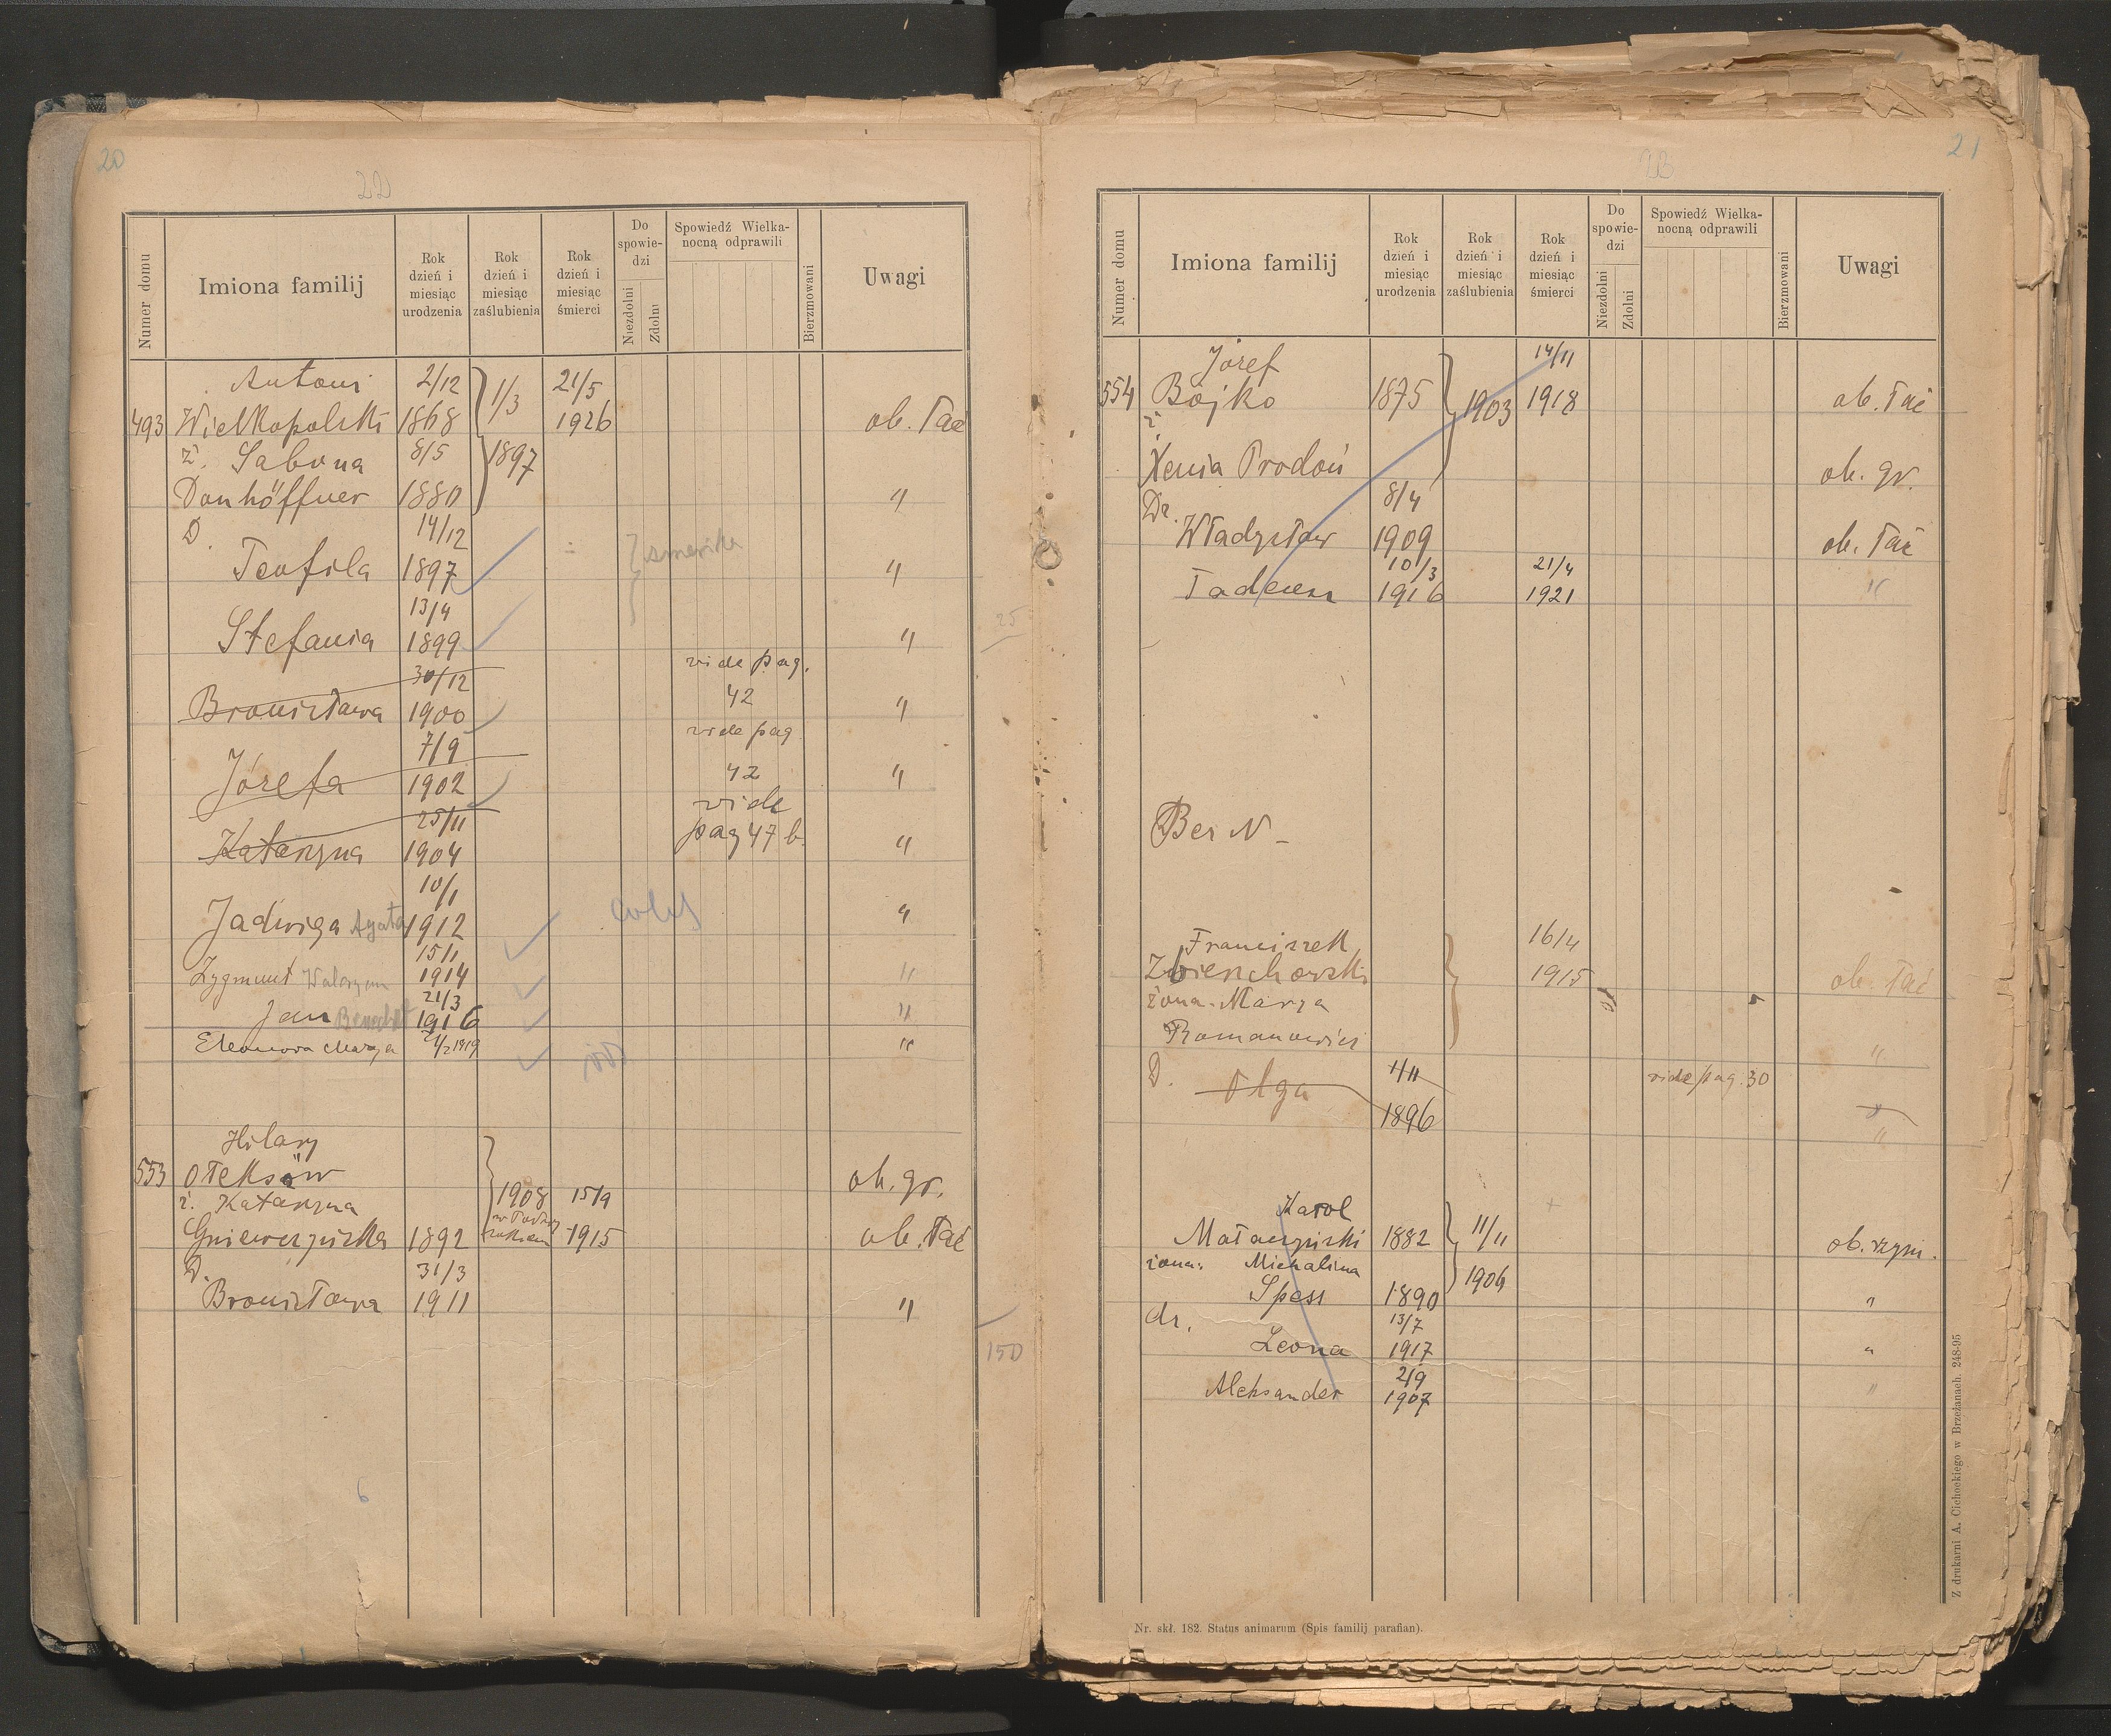 20
22
Numer domu
Imiona familij
Rok dzień i miesiąc urodzenia
Rok dzień i miesiąc zaślubienia
Rok dzień i miesiąc śmierci
Do spowiedzi
Niezdolni
Zdolni
Spowiedź Wielka-
nocną odprawili
Bierzmowani
Uwagi
Antoni 2/12 1/3 21/5
493 Wielkopolski 1868 1926 ob. łać
ż. Sabina 8/5 1897
Donhöffner 1880 "
D. 14/12
Teofila 1897 "
13/4
Stefania 1899 "
30/12 vide pag.
Bronisława 1900 42 "
7/9 vide pag
Józefa 1902 42 "
25/11 vide
Katarzyna 1904 pag 47 b. "
10/1
Jadwiga Agata 1912 "
15/1
Zygmunt 1914 "
21/3
Jan Benedykt 1916 "
Eleonora Marya 1/2 1919 "
Hilary
553 Ołeksów ob. gr.
ż. Katarzyna 1908 15/9
Gniewczyńska 1892 1915 ob. łać
D. 31/3
Bronisława 1911 "
25
150
6
21
23
Numer domu
Imiona familij
Rok dzień i miesiąc urodzenia
Rok dzień i miesiąc zaślubienia
Rok dzień i miesiąc śmierci
Do spowiedzi
Niezdolni
Zdolni
Spowiedź Wielka-
nocną odprawili
Bierzmowani
Uwagi
Józef 14/11
554 Bojko 1875 1903 1918 ob. łać
ż.
Xenia Prodoń ob. gr.
Dz. 8/4
Władysław 1909 ob. łać
10/3 21/4
Tadeusz 1916 1921 "
Bez N-
Franciszek 16/4
Zwierzchowski 1915 ob. łać
żona. Marya
Romanowicz "
D. 1/11 vide pag. 30
Olga 1896 "
Karol
Matuszyński 1882 11/11 ob. rzym.
żona: Michalina
Spess 1890 1904 "
dz. 13/7
Leona 1917 "
2/9
Aleksander 1907 "
Nr. skł. 182. Status animarum (Spis familij parafian).
Z drukarni A. Cichockiego w Brzeżanach. 248-95